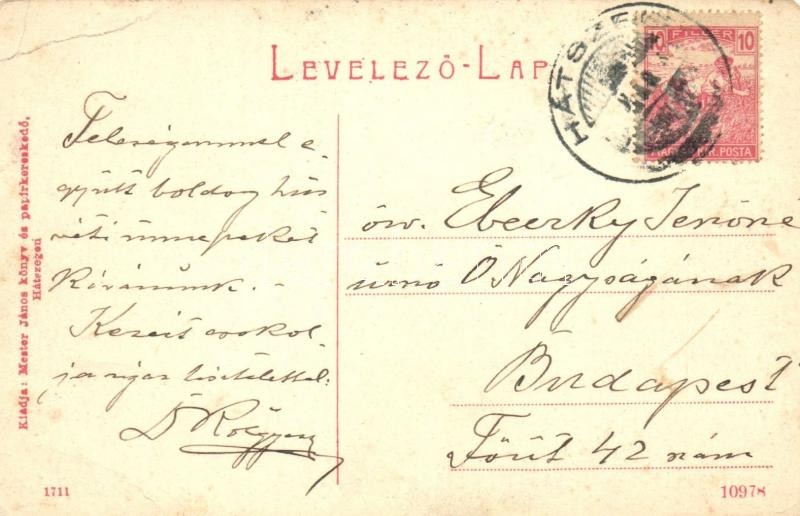 LEVELEZŐ-LAP
HÁTSZEG
10 FILLÉR 10
MAGYAR KIR. POSTA
Kiadja: Mester János könyv és papirkereskedő,
Hátszegen
Feleségemmel e-
gyütt boldog hús
véti ünnepeket
kívánunk. -
Kezeit csókol
ja igaz tisztelettel:
özv. Ebeczky Jenőné
úrnő Ő Nagyságának
Budapest
Főút 42 szám
1711
10978